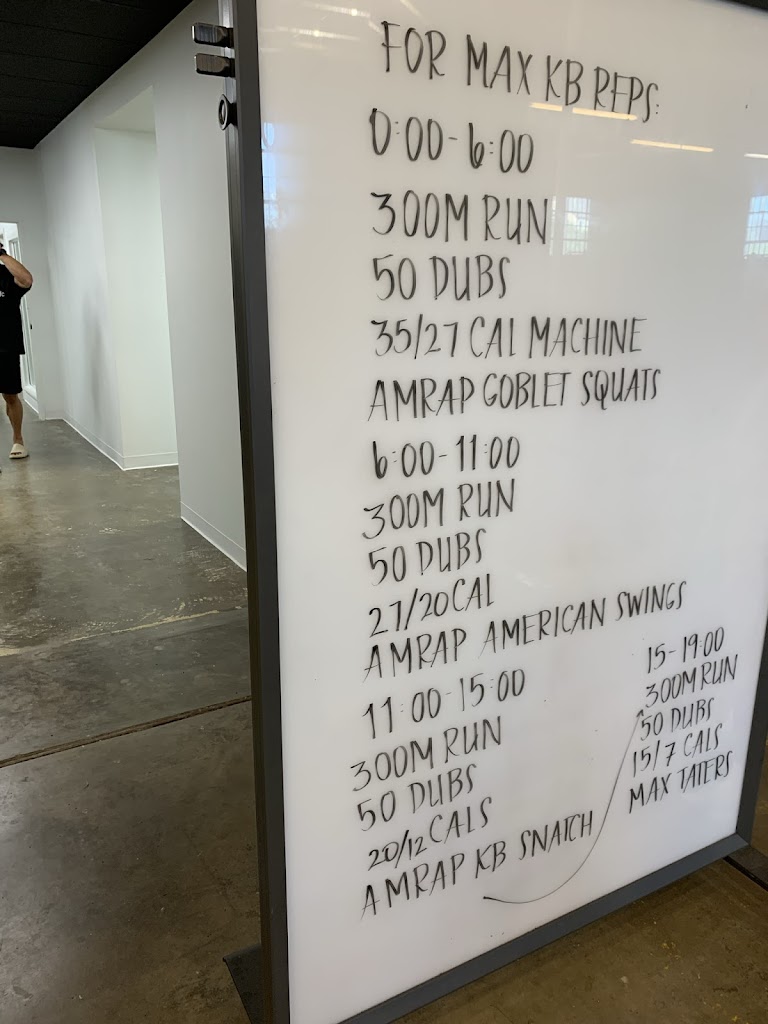 FOR MAX KB REPS:
0:00-6:00
300M RUN
50 DUBS
35/27 CAL MACHINE
AMRAP GOBLET SQUATS
6:00-11:00
300M RUN
50 DUBS
27/20 CAL
AMRAP AMERICAN SWINGS
11:00-15:00
300M RUN
50 DUBS
20/12 CALS
AMRAP KB SNATCH
15-19:00
300M RUN
50 DUBS
15/7 CALS
MAX TATERS